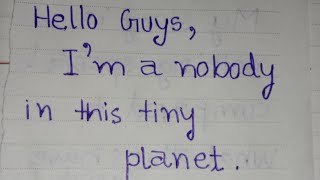 Hello Guys,
I'm a nobody
in this tiny
planet.